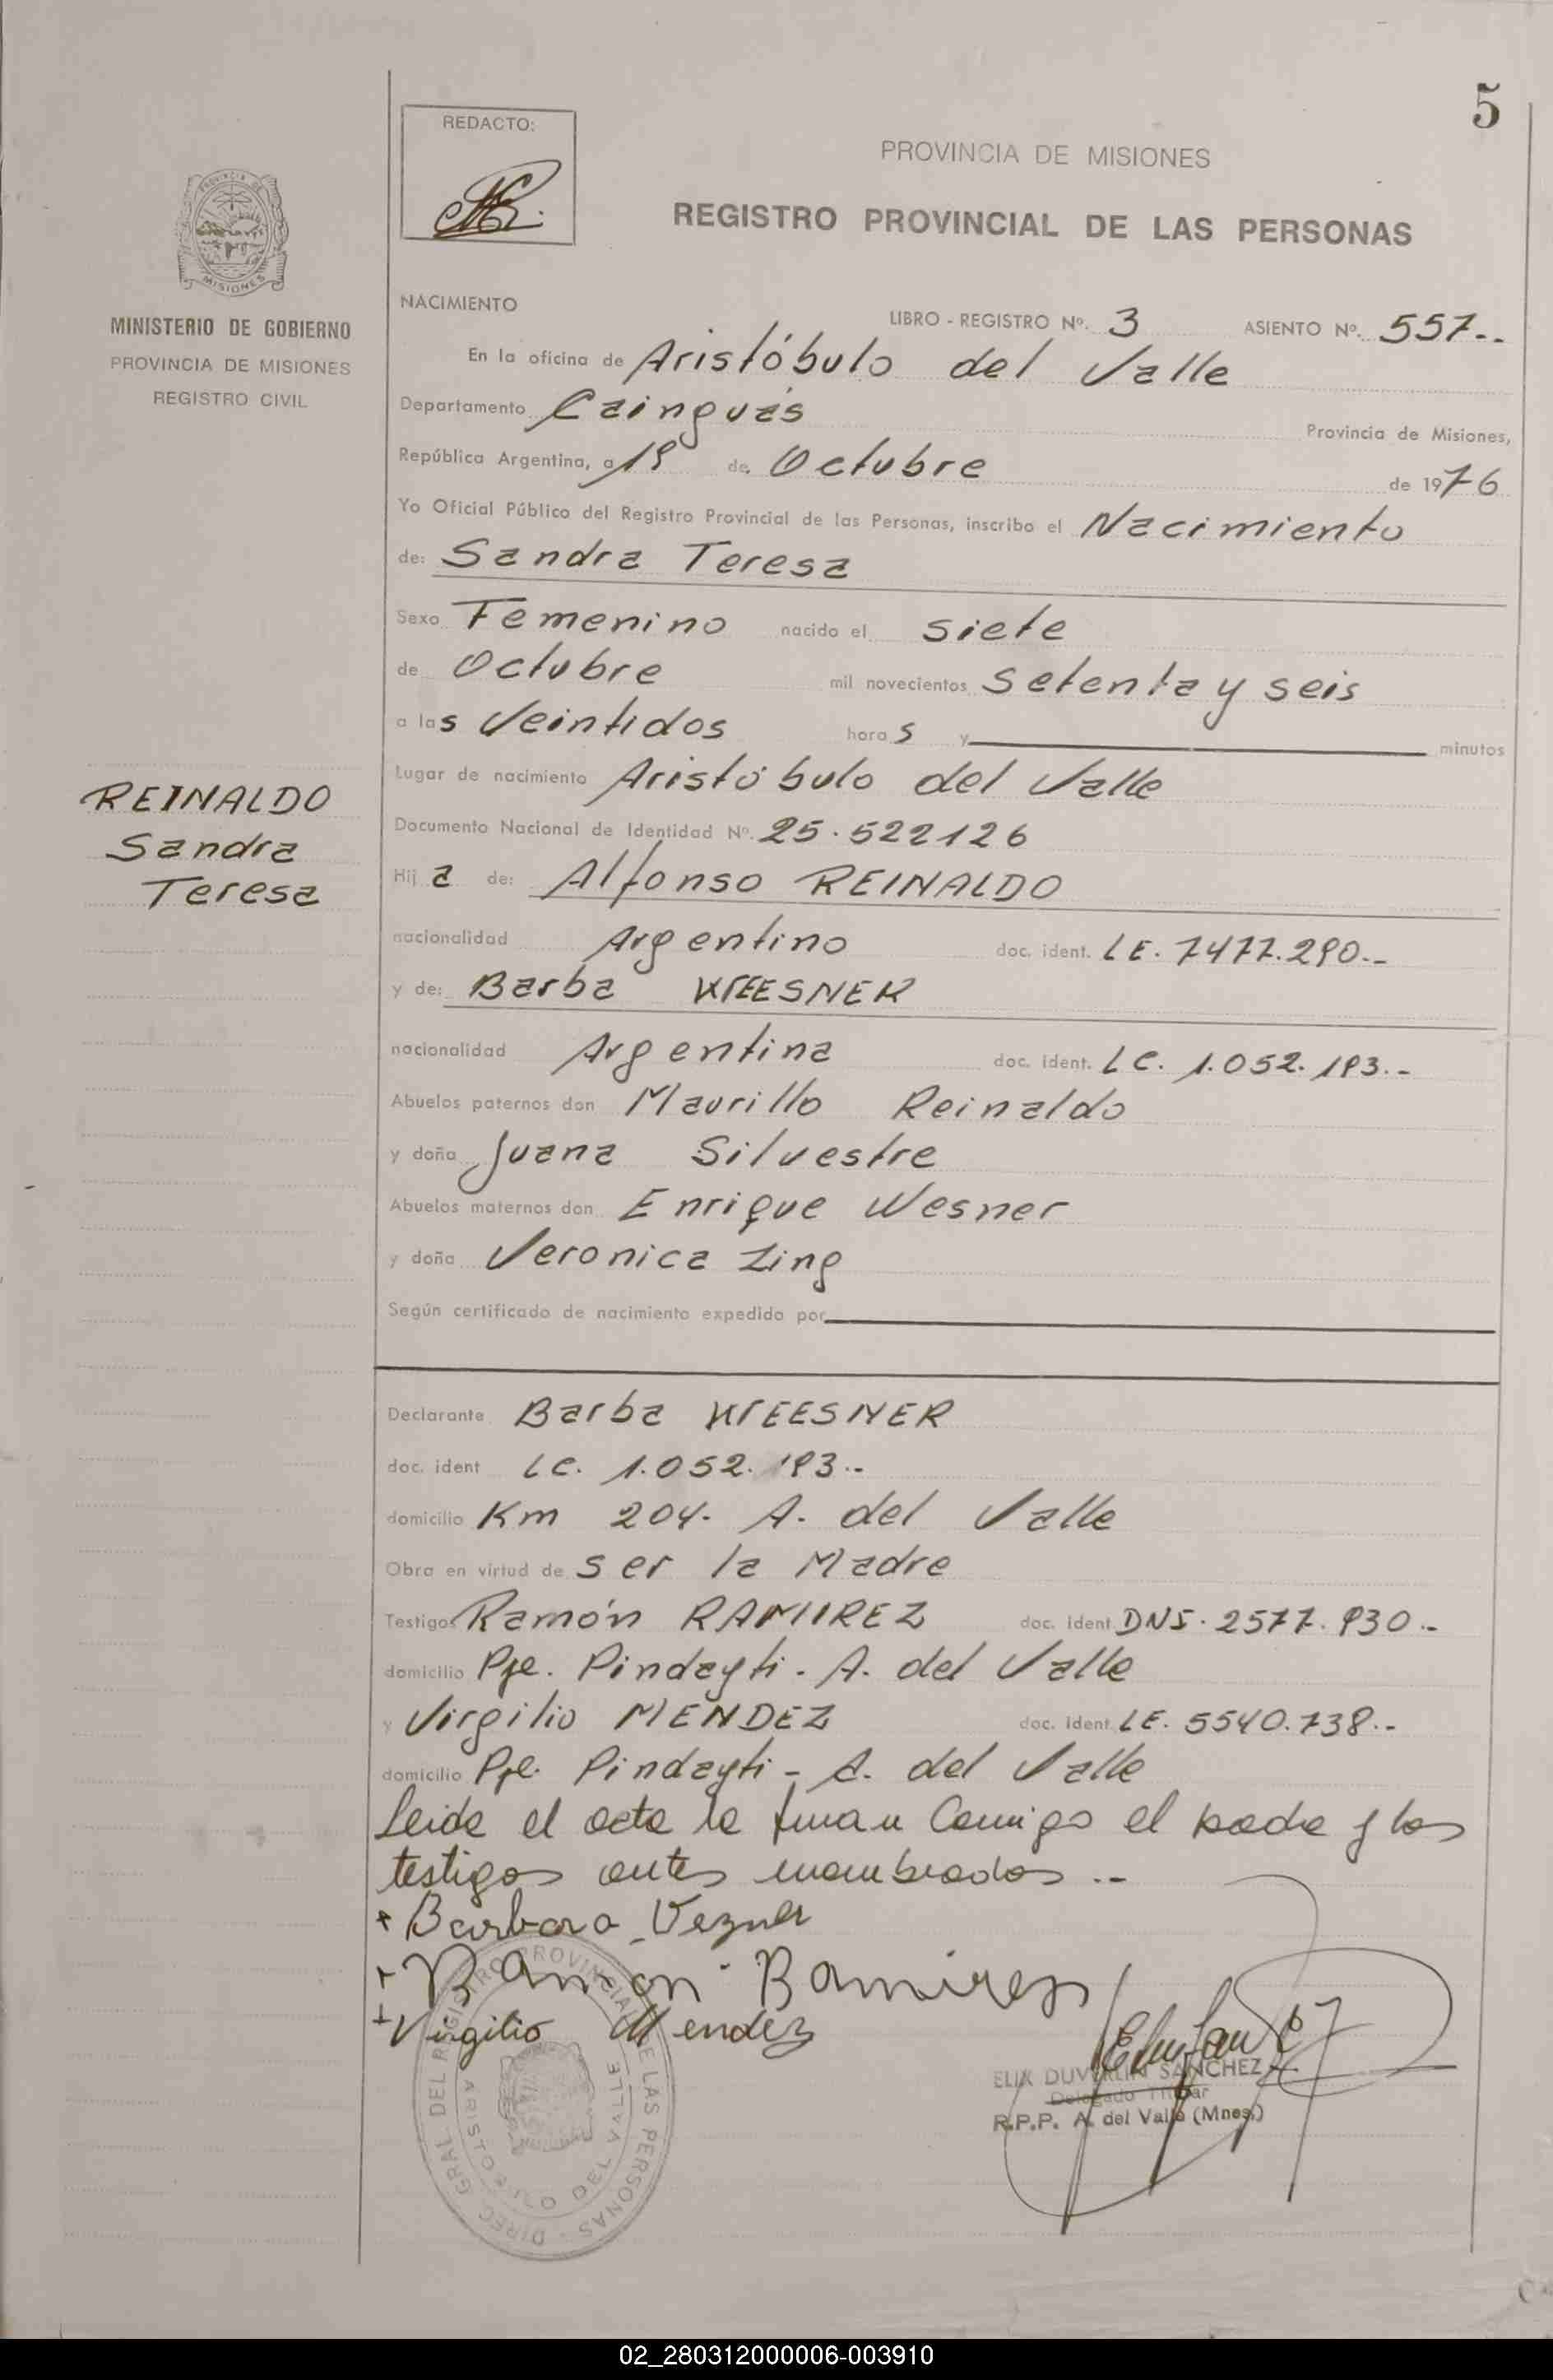 5
REDACTO:
PROVINCIA DE MISIONES
REGISTRO PROVINCIAL DE LAS PERSONAS
PROVINCIA DE
MISIONES
MINISTERIO DE GOBIERNO
PROVINCIA DE MISIONES
REGISTRO CIVIL
NACIMIENTO
LIBRO - REGISTRO Nº. 3 ASIENTO Nº. 557.-
En la oficina de Aristóbulo del Valle
Departamento Cainguás Provincia de Misiones,
República Argentina, a 19 de Octubre de 1976
Yo Oficial Público del Registro Provincial de las Personas, inscribo el Nacimiento
de: Sandra Teresa
Sexo Femenino nacido el siete
de Octubre mil novecientos setenta y seis
a las veintidos horas y minutos
Lugar de nacimiento Aristóbulo del Valle
REINALDO
Sandra
Teresa
Documento Nacional de Identidad Nº. 25.522126
Hija de: Alfonso REINALDO
nacionalidad Argentino doc. ident. LE. 7477.290.-
y de: Barba
nacionalidad Argentina doc. ident. LC. 1.052.193.-
Abuelos paternos don Maurillo Reinaldo
y doña Juana Silvestre
Abuelos maternos don Enrique Wesner
y doña Veronica Zing
Según certificado de nacimiento expedido por
Declarante Barba
doc. ident LC. 1.052.193.-
domicilio Km 204. A. del Valle
Obra en virtud de ser la Madre
Testigos Ramón RAMIREZ doc. ident DNI. 2577.930.-
domicilio Pje. Pindayti. A. del Valle
y Virgilio MENDEZ doc. ident. LE. 5540.738.-
domicilio Pje. Pindayti - A. del Valle
Leida el acta la firman Conmigo el padre y los
testigos antes nombrados.-
+ Barbara Vezner
+ Ramon Ramires
+ Virgilio Mendez
DIREC. GRAL DEL REGISTRO PROVINCIAL DE LAS PERSONAS
ARISTOBULO DEL VALLE
ELIX DUVERLIN SANCHEZ
Delegado Titular
R.P.P. A. del Valle (Mnes.)
02_280312000006-003910